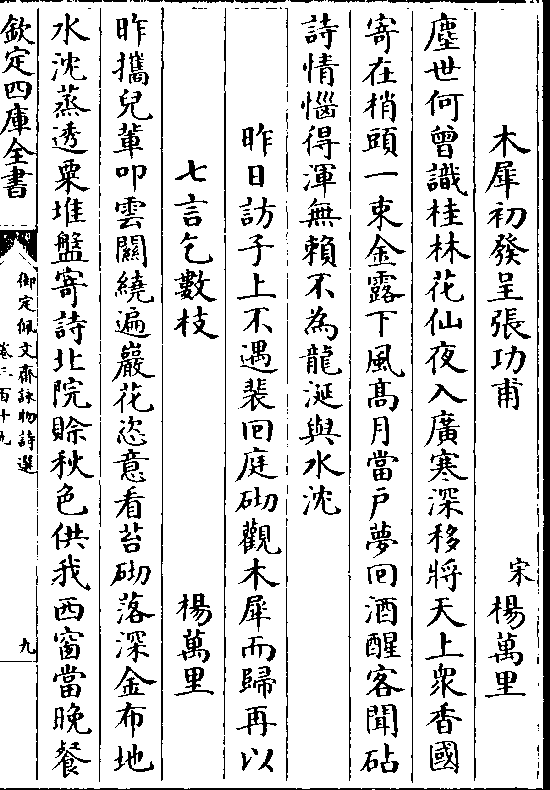 木犀初發呈張功甫　宋 楊萬里
塵世何曾識桂林花仙夜入廣寒深移將天上衆香國
寄在梢頭一束金露下風髙月當戶夢回酒醒客聞砧
詩情惱得渾無賴不為龍涎與水沈
昨日訪子上不遇裴回庭砌觀木犀而歸再以
七言乞數枝　楊萬里
昨攜兒輩叩雲關繞遍巖花恣意看苔砌落深金布地
水沈蒸透粟堆盤寄詩北院賒秋色供我西窗當晚餐
欽定四庫全書
御定佩文齋詠物詩選
卷三百十九
九